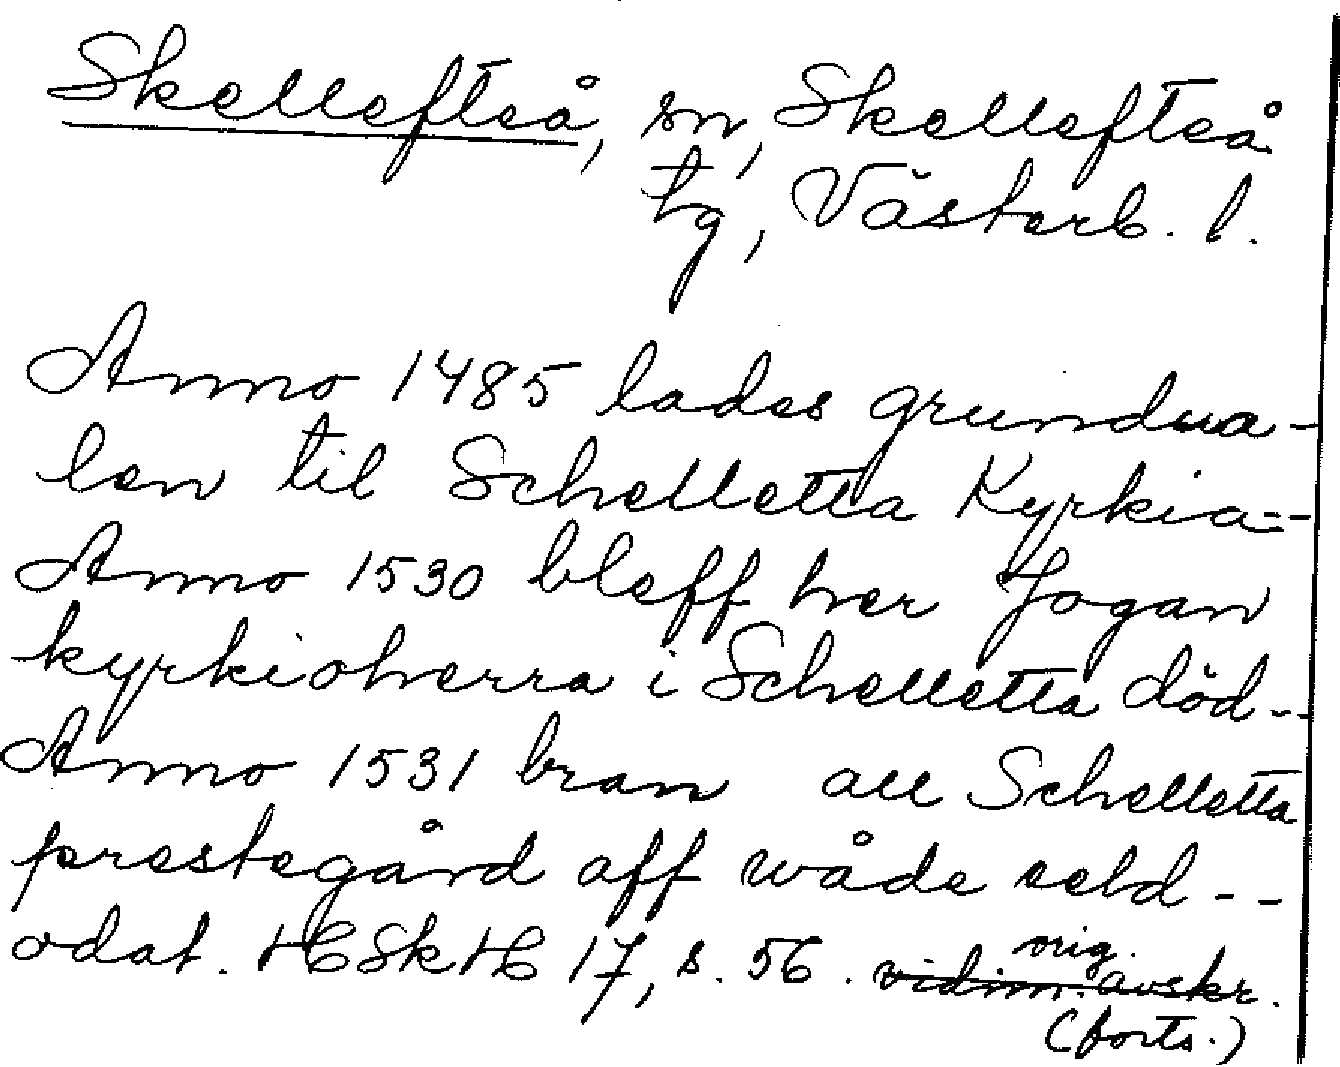 Skellefteå, sn, Skellefteå
tg, Västerb. l.
Anno 1485 lades grundua-
len til Schelletta Kyrkia--
Anno 1530 bleff her Jogan
kyrkioherra i Schelletta död--
Anno 1531 bran all Schelletta
prestegård aff wåde eeld --
odat. HSH 17, s. 56. vidim. avskr.
orig.
(forts.)